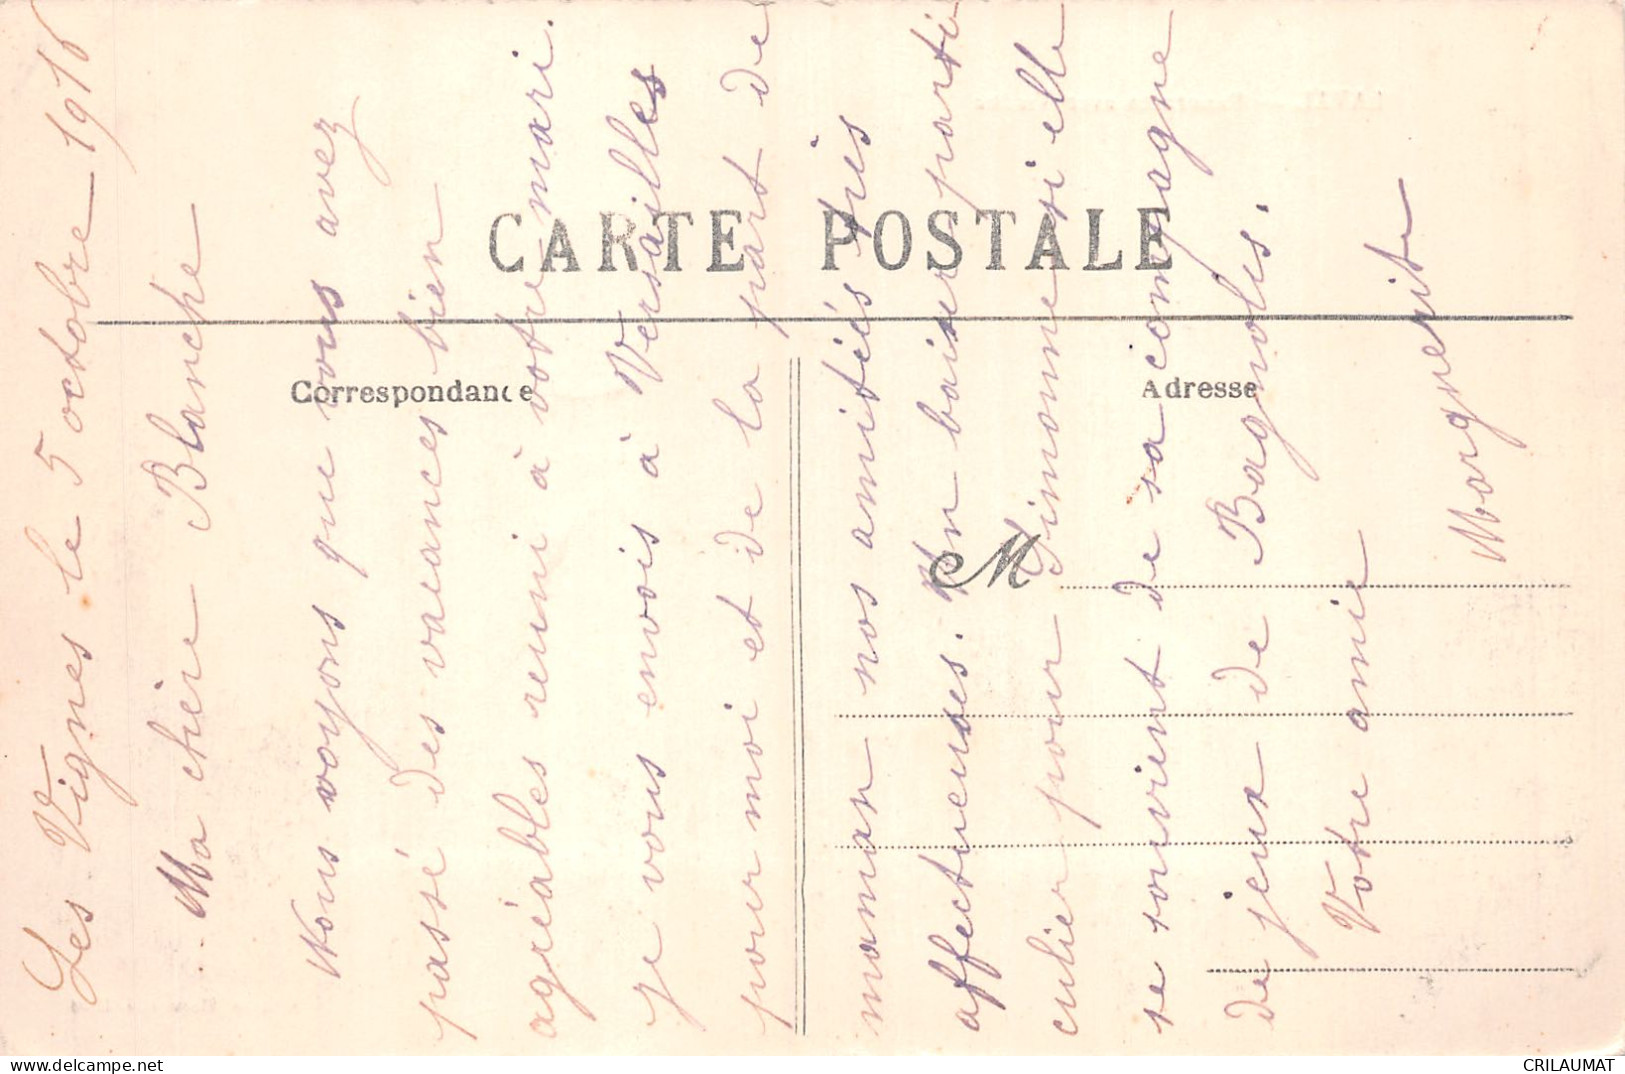 CARTE POSTALE
Correspondance
Adresse
M
Les Vignes le 5 octobre 1916
Ma chère Blanche
Nous voyons que vous avez
passé des vacances bien
agréables reuni à votre mari.
je vous envois à Versailles
pour moi et de la part de
maman nos amitiés très
affectueuses. Un baiser parti
culier pour Simonne si elle
se souvient de sa compagne
de jeux de Bagnoles.
Votre amie
Marguerite
CRILAUMAT